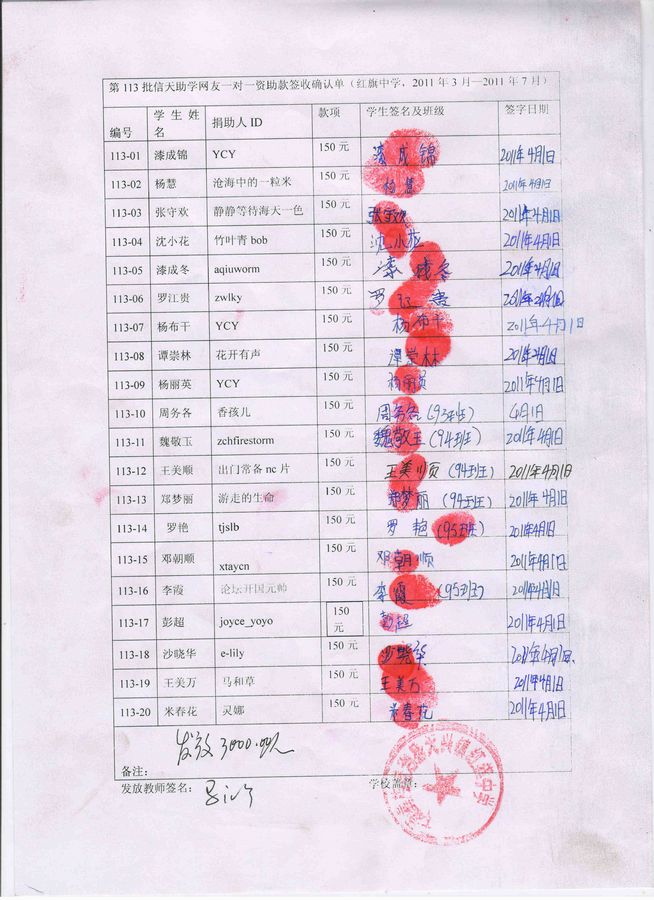 第 113 批信天助学网友一对一资助款签收确认单（红旗中学，2011 年 3 月—2011 年 7 月）
编号 学 生 姓名 捐助人 ID 款项 学生签名及班级 签字日期
113-01 漆成锦 YCY 150 元 漆成锦 2011年4月1日
113-02 杨慧 沧海中的一粒米 150 元 杨慧 2011年4月1日
113-03 张守欢 静静等待海天一色 150 元 张守欢 2011年4月1日
113-04 沈小花 竹叶青 bob 150 元 沈小花 2011年4月1日
113-05 漆成冬 aqiuworm 150 元 漆成冬 2011年4月1日
113-06 罗江贵 zwlky 150 元 罗江贵 2011年4月1日
113-07 杨布干 YCY 150 元 杨布干 2011年4月1日
113-08 谭崇林 花开有声 150 元 谭崇林 2011年4月1日
113-09 杨丽英 YCY 150 元 杨丽英 2011年4月1日
113-10 周务各 香孩儿 150 元 周务各(93班) 4月1日
113-11 魏敬玉 zchfirestorm 150 元 魏敬玉(94班) 2011年4月1日
113-12 王美顺 出门常备 nc 片 150 元 王美顺(94班) 2011年4月1日
113-13 郑梦丽 游走的生命 150 元 郑梦丽(94班) 2011年4月1日
113-14 罗艳 tjslb 150 元 罗艳(95班) 2011年4月1日
113-15 邓朝顺 xtaycn 150 元 邓朝顺 2011年4月1日
113-16 李霞 论坛开国元帅 150 元 李霞(95班) 2011年4月1日
113-17 彭超 joyce_yoyo 150 元 彭超 2011年4月1日
113-18 沙晓华 e-lily 150 元 沙晓华 2011年4月1日
113-19 王美万 马和草 150 元 王美万 2011年4月1日
113-20 米春花 灵娜 150 元 米春花 2011年4月1日
发放3000.00元
备注：
发放教师签名： 学校盖章：